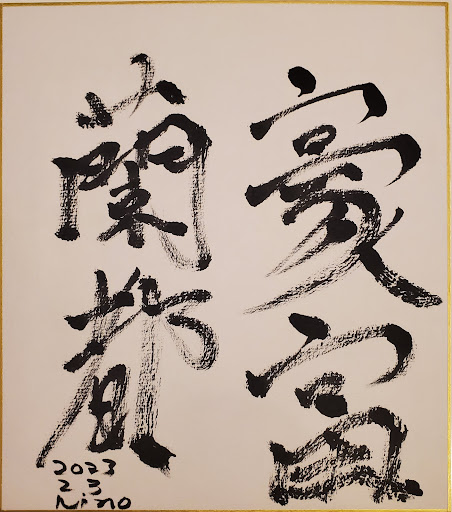 豪富
蘭都
2023
2 3
Nino